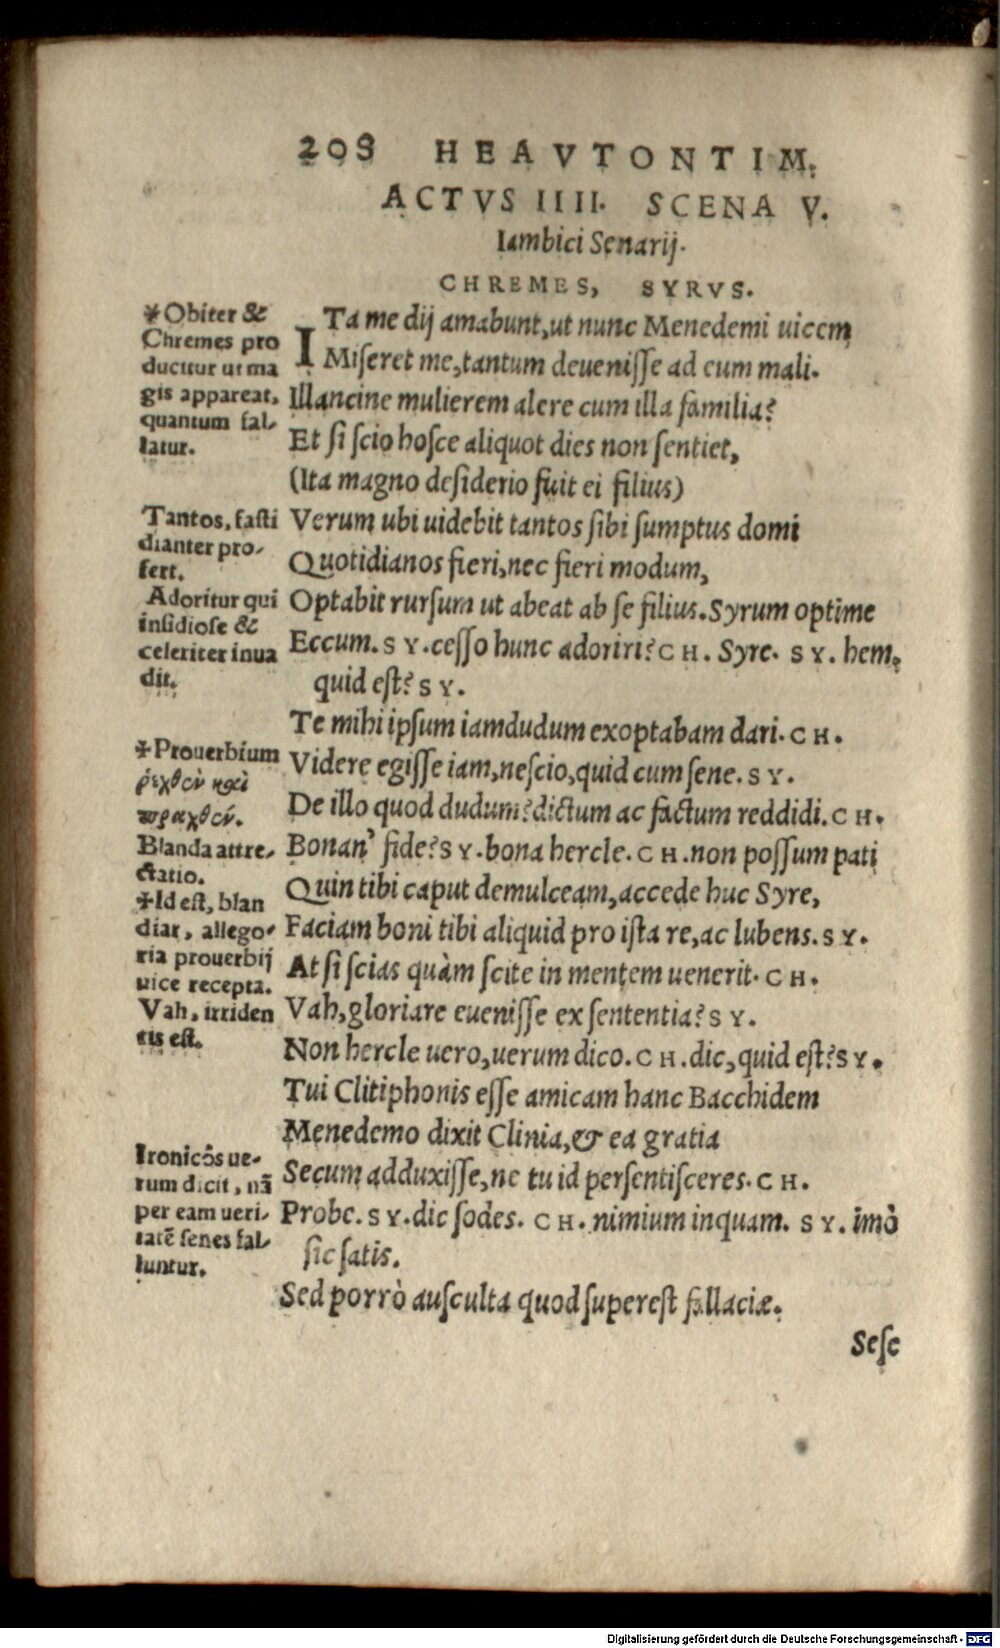 208 HEAVTONTIM.
ACTVS IIII. SCENA V.
Iambici Senarij.
CHREMES, SYRVS.
ITa me dij amabunt,ut nunc Menedemi uicem
Miſeret me,tantum deueniſſe ad eum mali.
Illancine mulierem alere cum illa familia?
Et ſi ſcio hoſce aliquot dies non ſentiet,
(Ita magno deſiderio fuit ei filius)
Verum ubi uidebit tantos ſibi ſumptus domi
Quotidianos fieri,nec fieri modum,
Optabit rurſum ut abeat ab ſe filius.Syrum optime
Eccum.SY.ceſſo hunc adoriri?CH. Syre. SY. hem,
quid eſt?SY.
Te mihi ipſum iamdudum exoptabam dari.CH.
Videre egiſſe iam,neſcio,quid cum ſene.SY.
De illo quod dudum?dictum ac factum reddidi.CH.
Bonan' fide?SY.bona hercle.CH.non poſſum pati
Quin tibi caput demulceam,accede huc Syre,
Faciam boni tibi aliquid pro iſta re,ac lubens.SY.
At ſi ſcias quàm ſcite in mentem uenerit.CH.
Vah,gloriare eueniſſe ex ſententia?SY.
Non hercle uero,uerum dico.CH.dic,quid eſt?SY.
Tui Clitiphonis eſſe amicam hanc Bacchidem
Menedemo dixit Clinia,& ea gratia
Secum adduxiſſe,ne tu id perſentiſceres.CH.
Probe.SY.dic ſodes. CH.nimium inquam. SY.imò
ſic ſatis.
Sed porrò auſculta quod ſupereſt fallaciæ.
Seſe
*Obiter &
Chremes pro
ducitur ut ma
gis appareat,
quantum fal-
latur.
Tantos, faſti
dianter pro-
fert.
Adoritur qui
inſidioſe &
celeriter inua
dit.
*Prouerbium
ῥεχθὲν καὶ
πραχθέν.
Blanda attre-
ctatio.
*Id eſt, blan
diar, allego-
ria prouerbij
uice recepta.
Vah, irriden
tis eſt.
Ironicôs ue-
rum dicit, nã
per eam ueri-
tatẽ ſenes fal-
luntur.
Digitalisierung gefördert durch die Deutsche Forschungsgemeinschaft - DFG